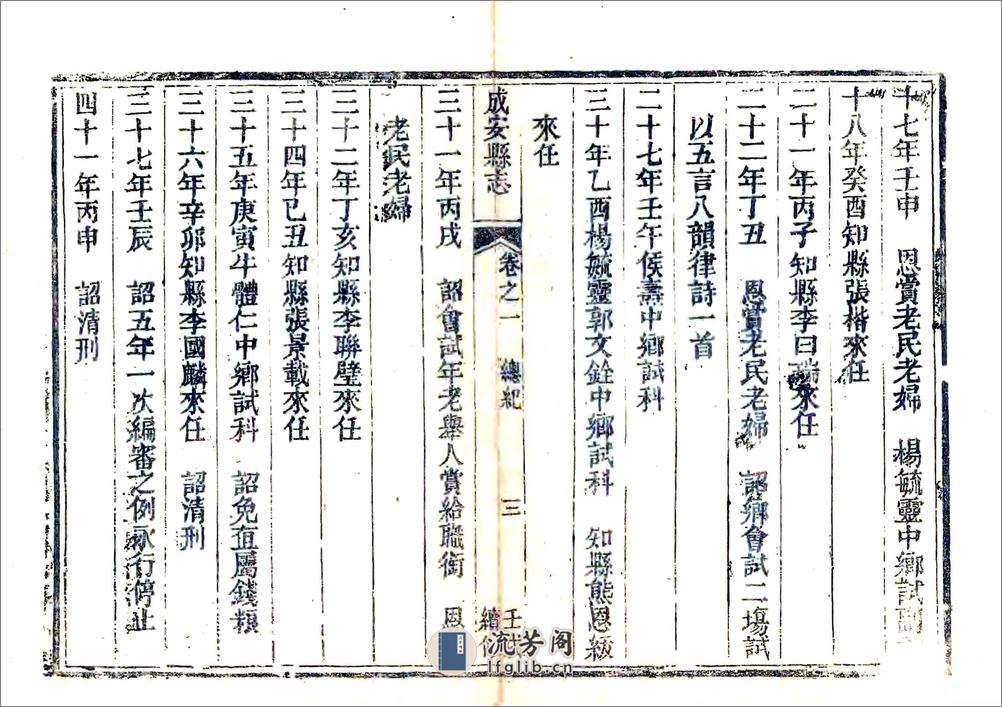 十七年壬申　恩賞老民老婦　楊毓靈中鄉試副
十八年癸酉知縣張楷來任
二十一年丙子知縣李曰瑞來任
二十二年丁丑　恩賞老民老婦　詔鄉會試二場試
以五言八韻律詩一首
二十七年壬午侯壽中鄉試科
三十年乙酉楊毓靈郭文銓中鄉試科　知縣熊恩紱
來任
成安縣志　卷之一　總紀　三　壬　續
三十一年丙戌　詔會試年老舉人賞給職銜　恩
老民老婦
三十二年丁亥知縣李聯璧來任
三十四年己丑知縣張景載來任
三十五年庚寅牛體仁中鄉試科　詔免直屬錢糧
三十六年辛卯知縣李國麟來任　詔清刑
三十七年壬辰　詔五年一次編審之例永行停止
四十一年丙申　詔清刑
流芳阁
lfglib.cn